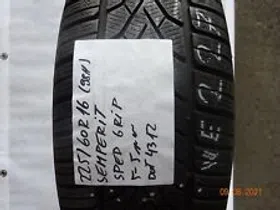 225/60R16 (98H)
SEMPERIT
SPED GRIP
5-5mm
DOT 4312
WE 2237
09/06/2021